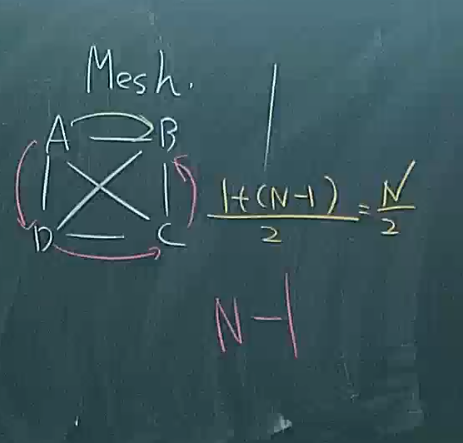 Mesh.
A B
D C
1+(N-1)/2 = N/2
N-1